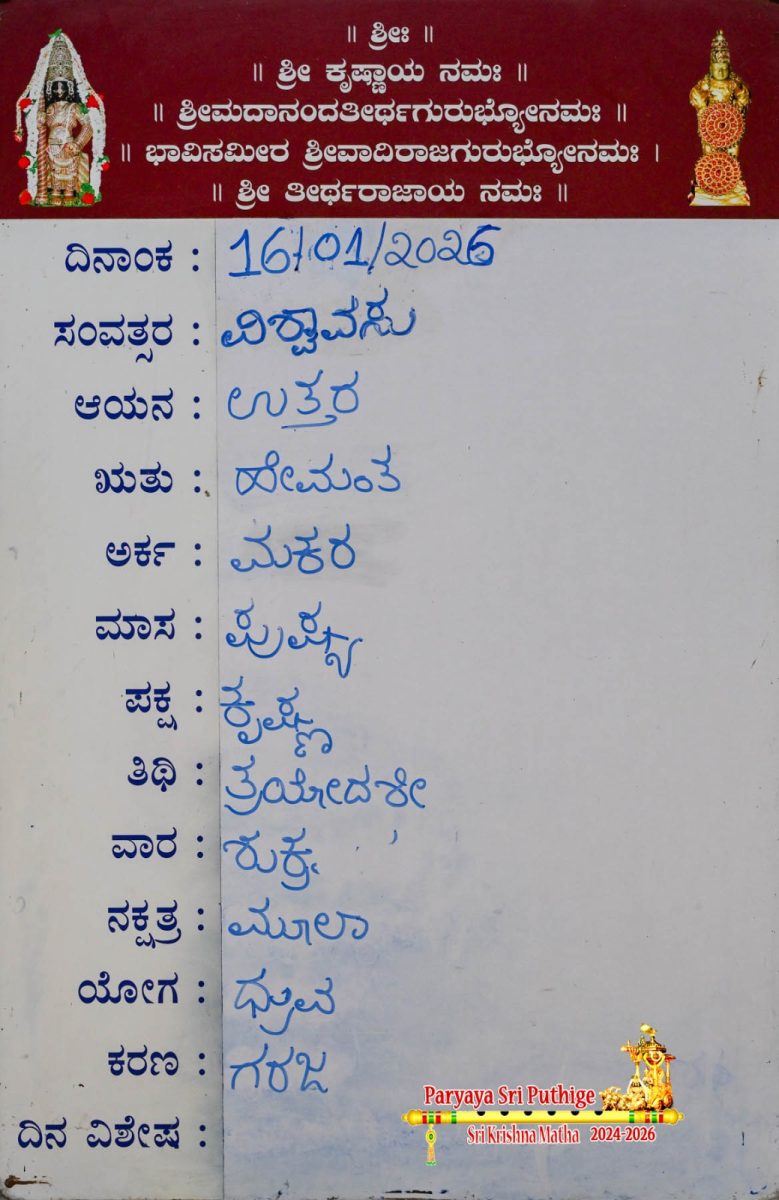 ॥ ಶ್ರೀಃ ॥
॥ ಶ್ರೀ ಕೃಷ್ಣಾಯ ನಮಃ ॥
॥ ಶ್ರೀಮದಾನಂದತೀರ್ಥಗುರುಭ್ಯೋನಮಃ ॥
॥ ಭಾವಿಸಮೀರ ಶ್ರೀವಾದಿರಾಜಗುರುಭ್ಯೋನಮಃ ।
॥ ಶ್ರೀ ತೀರ್ಥರಾಜಾಯ ನಮಃ ॥
ದಿನಾಂಕ : 16/01/2026
ಸಂವತ್ಸರ : ವಿಶ್ವಾವಸು
ಆಯನ : ಉತ್ತರ
ಋತು : ಹೇಮಂತ
ಅರ್ಕ : ಮಕರ
ಮಾಸ : ಪುಷ್ಯ
ಪಕ್ಷ : ಕೃಷ್ಣ
ತಿಥಿ : ತ್ರಯೋದಶೀ
ವಾರ : ಶುಕ್ರ
ನಕ್ಷತ್ರ : ಮೂಲಾ
ಯೋಗ : ಧ್ರುವ
ಕರಣ : ಗರಜ
ದಿನ ವಿಶೇಷ :
Paryaya Sri Puthige
Sri Krishna Matha 2024-2026